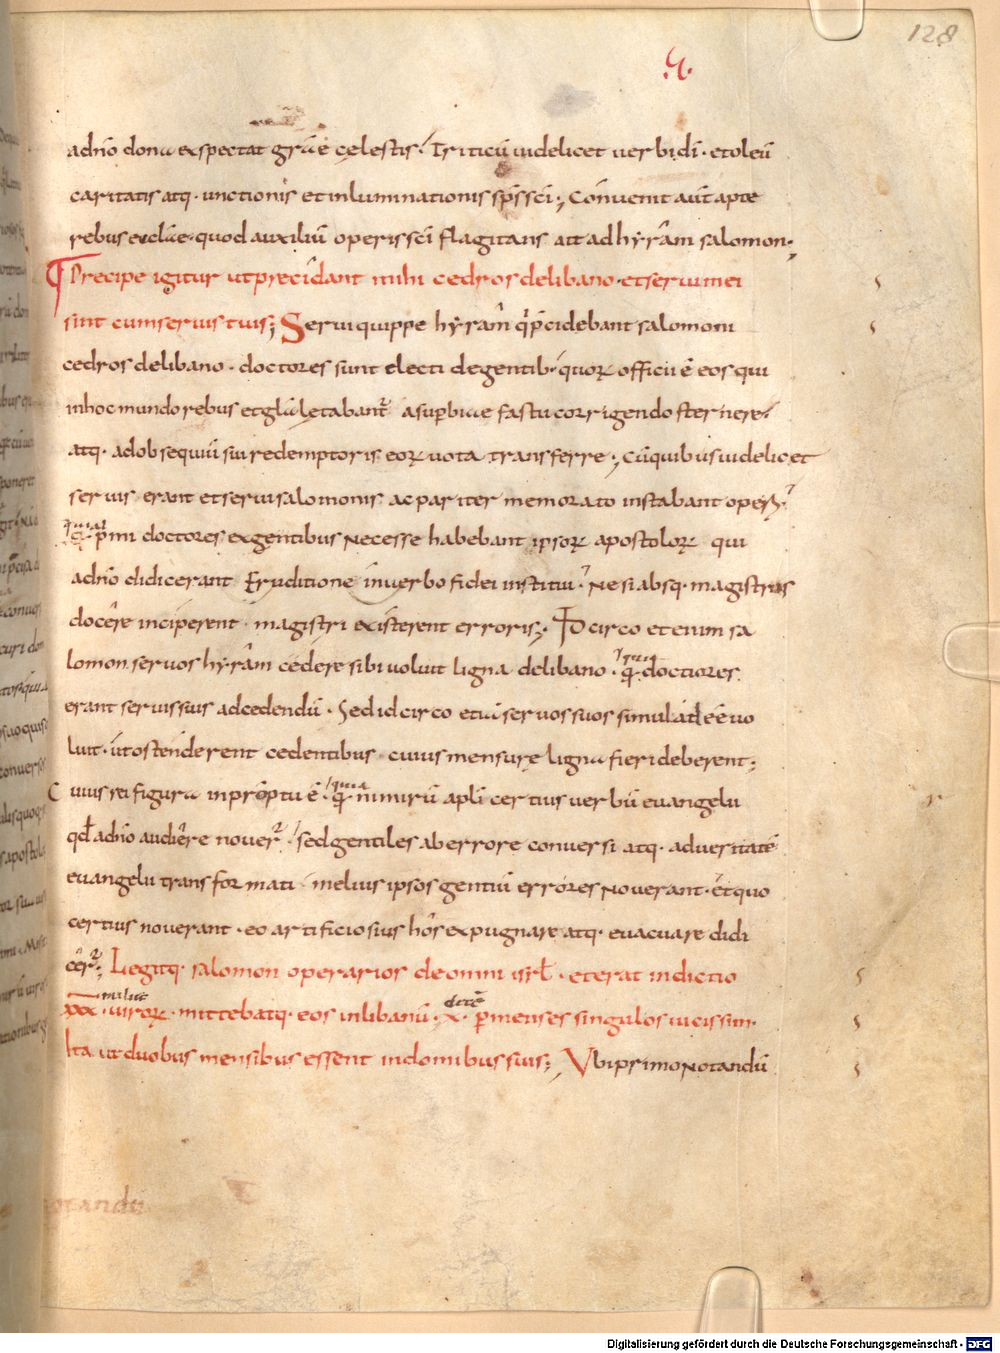 128
adnō dona expectat gr̄aę cęlestis. Triticū uidelicet uerbi dī. et oleū
caritatis atq. unctionis et inluminationis sp̄s sc̄i; Conuenit aūt apte
rebus eccl̄ae. quod auxiliū operis sc̄i flagitans ait ad hyrām salomon.
Precipe igitur ut precidant mihi cedros de libano. et serui mei
sint cum seruis tuis; Serui quippe hyrām q̄ p̄cidebant salomoni
cedros de libano. doctores sunt electi de gentib. quorꝝ officii ē eos qui
in hoc mundo rebus et gl̄a lętabant̄ a sup̄biae fastu corrigendo sternere
atq. ad obsequiū sui redemptoris eorꝝ uota transferre; Cū quibus uidelicet
seruis erant et serui salomonis ac pariter memorato instabant operi
quia p̄mi doctores ex gentibus necesse habebant ipsorꝝ apostolorꝝ qui
a dn̄o didicerant Eruditione in uerbo fidei institui. Ne si absq. magistris
docēre inciperent. magistri existerent erroris. Idcirco etenim sa
lomon seruos hyrām cedere sibi uoluit ligna de libano. quia doctiores
erant seruis suis ad cedendū. Sed idcirco etiā seruos suos simul adēē uo
luit. ut ostenderent cedentibus cuius mensurę ligna fieri deberent;
Cuius rei figura in promptu ē. quia nimirū apl̄i certius uerbū euangelii
qd̄ a dn̄o audire nouer̄. sed gentiles ab errore conuersi atq. ad ueritatē
euangelii transformati melius ipsos gentiū errores nouerant. et quo
certius nouerant. eo artificiosius hos expugnare atq. euacuare didi
cer̄; Legitq. salomon operarios de omni isrl̄. et erat indictio
xxx milia uirorꝝ. mittebatq. eos in libanū. x. p̄ menses singulos uicissim.
Ita ut duobus mensibus essent in domibus suis; Ubi primo notandū
Digitalisierung gefördert durch die Deutsche Forschungsgemeinschaft - DFG